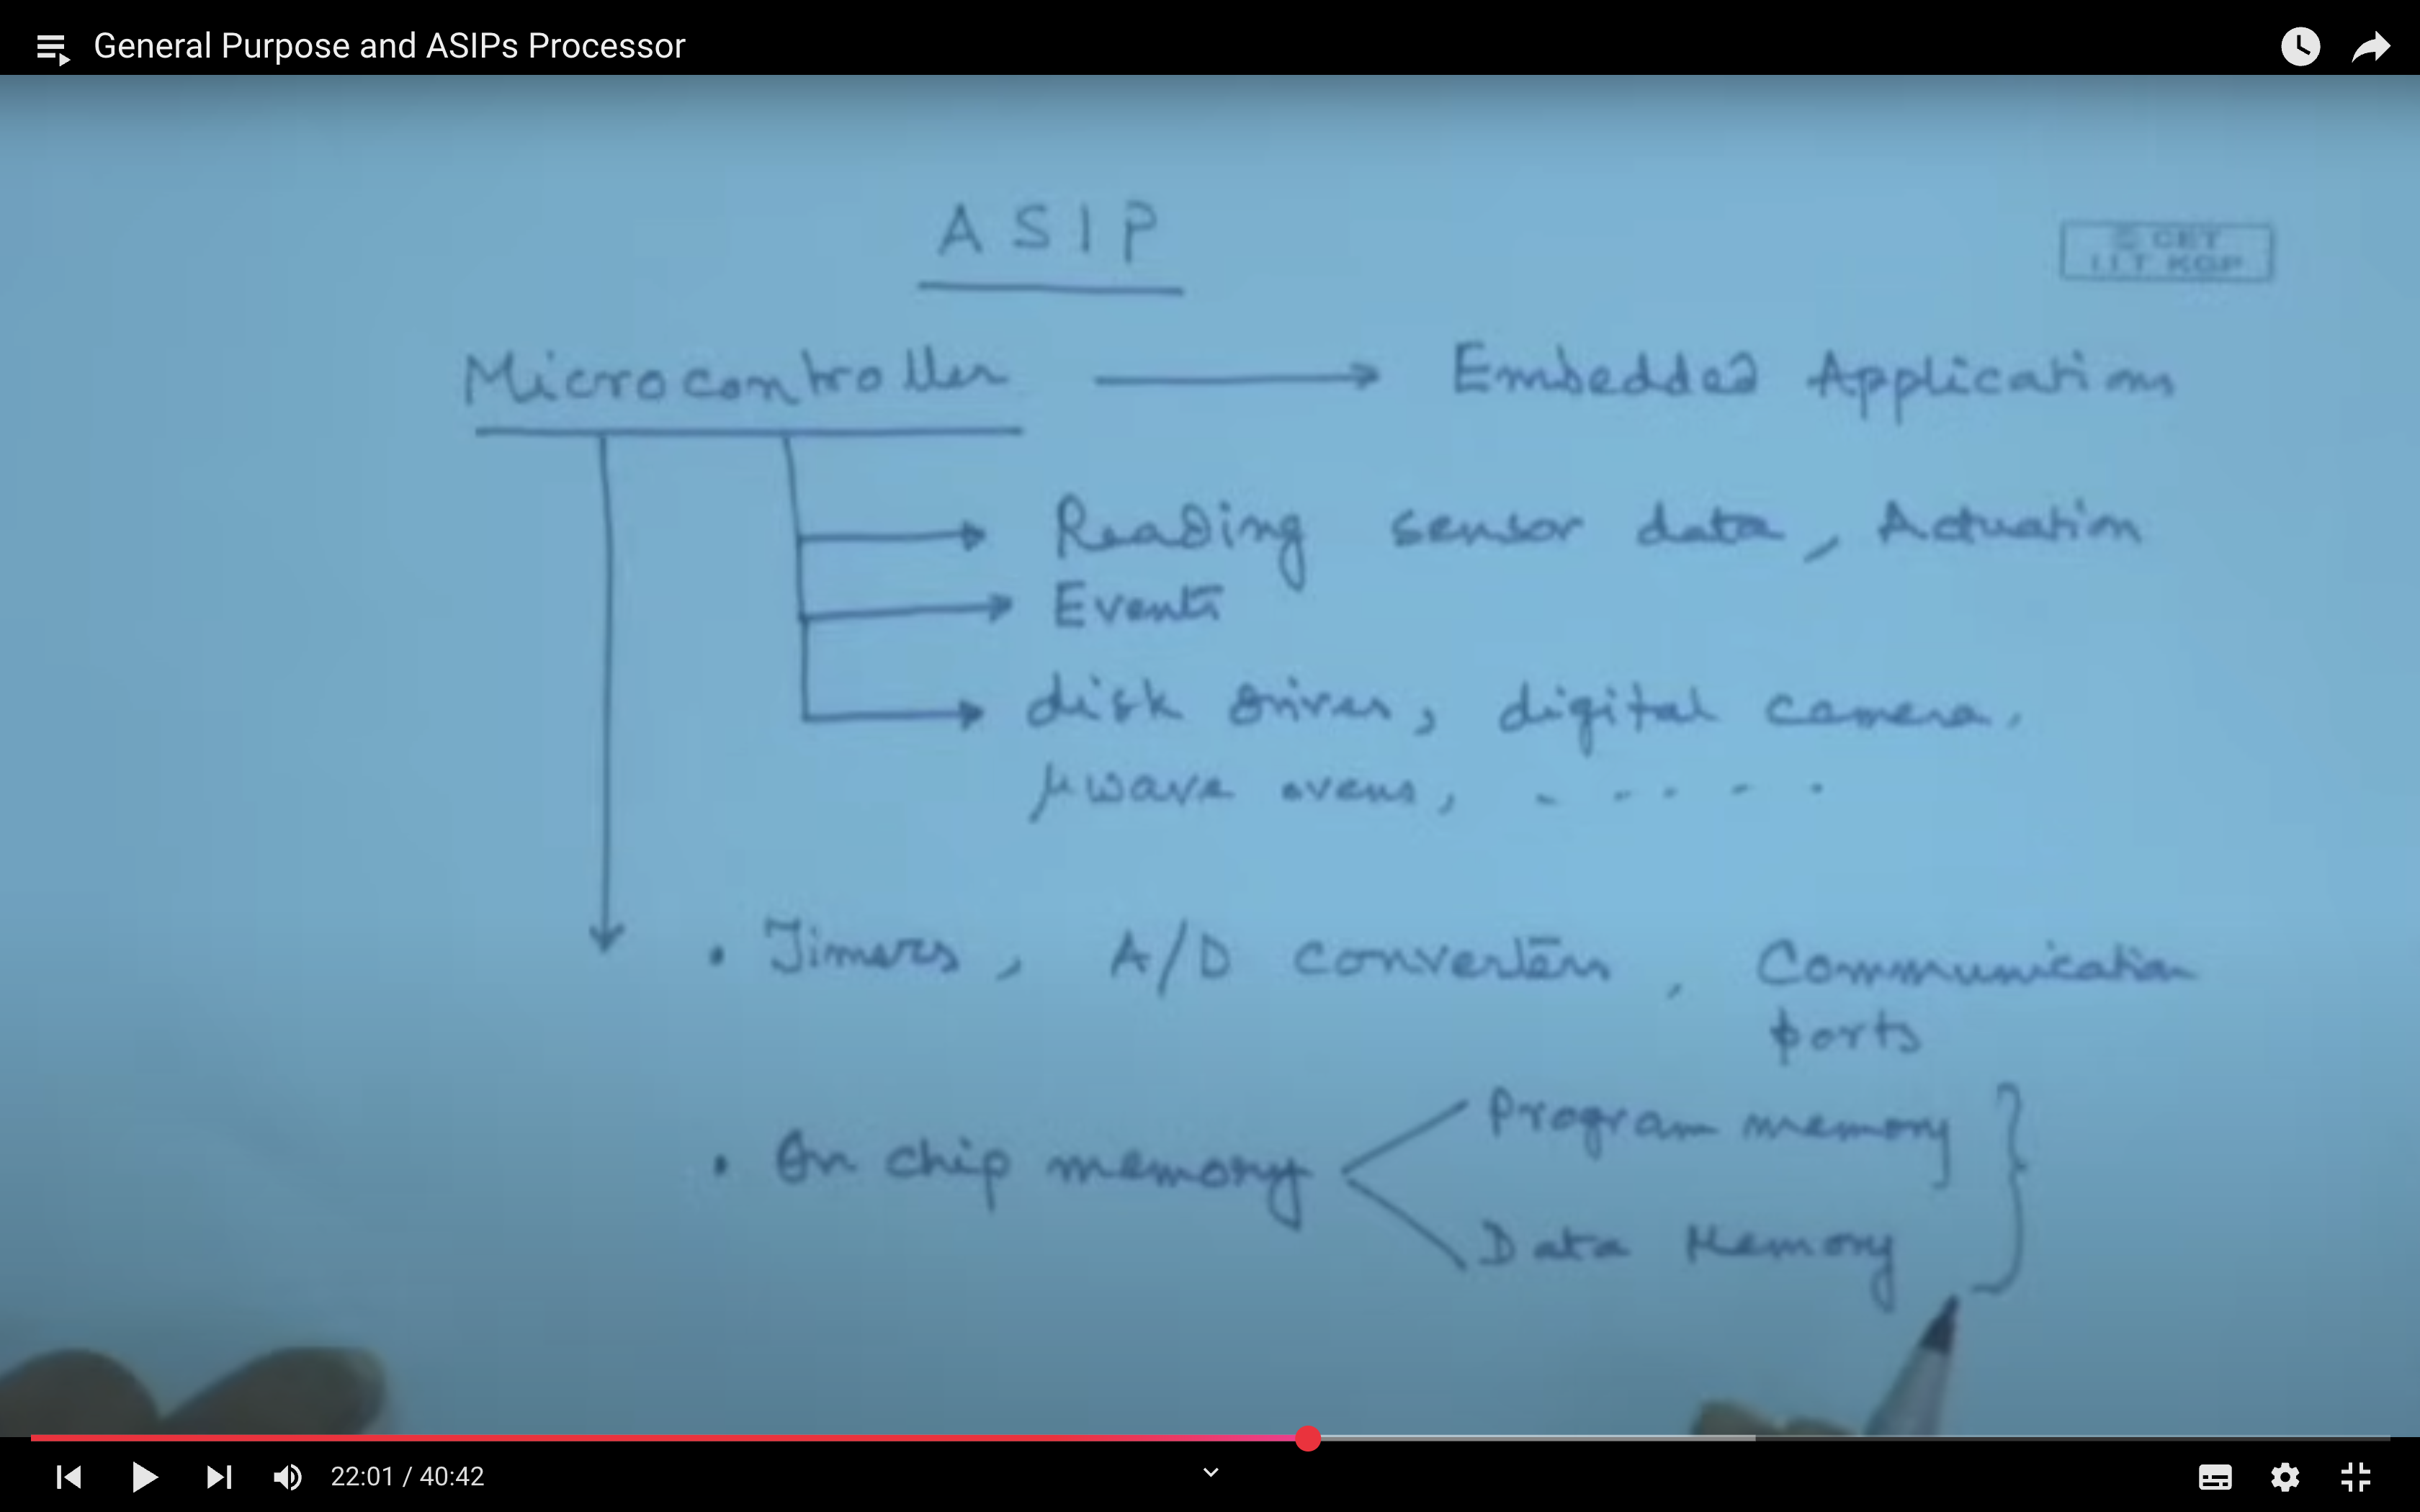 General Purpose and ASIPs Processor
ASIP
© CET
I.I.T KGP
Microcontroller → Embedded Applications
Reading sensor data, Actuation
Events
disk drives, digital camera,
μwave ovens, - - - - -
• Timers, A/D converters, Communication
ports
• On chip memory
Program memory
Data Memory
22:01 / 40:42